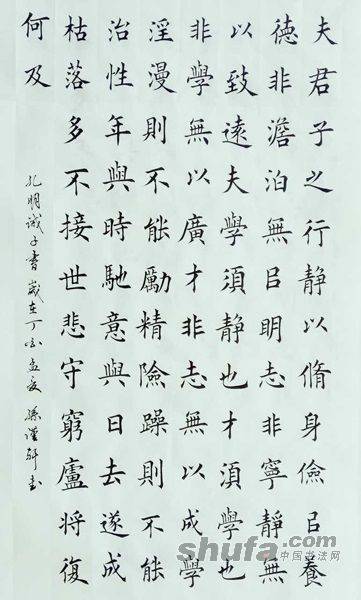 夫君子之行靜以脩身儉㠯養
德非澹泊無㠯明志非寧靜無
以致遠夫學須靜也才須學也
非學無以廣才非志無以成學
淫漫則不能勵精險躁則不能
治性年與時馳意與日去遂成
枯落多不接世悲守窮廬將復
何及
孔明誡子書歲在丁酉孟夏孫
shufa.com
中国书法网